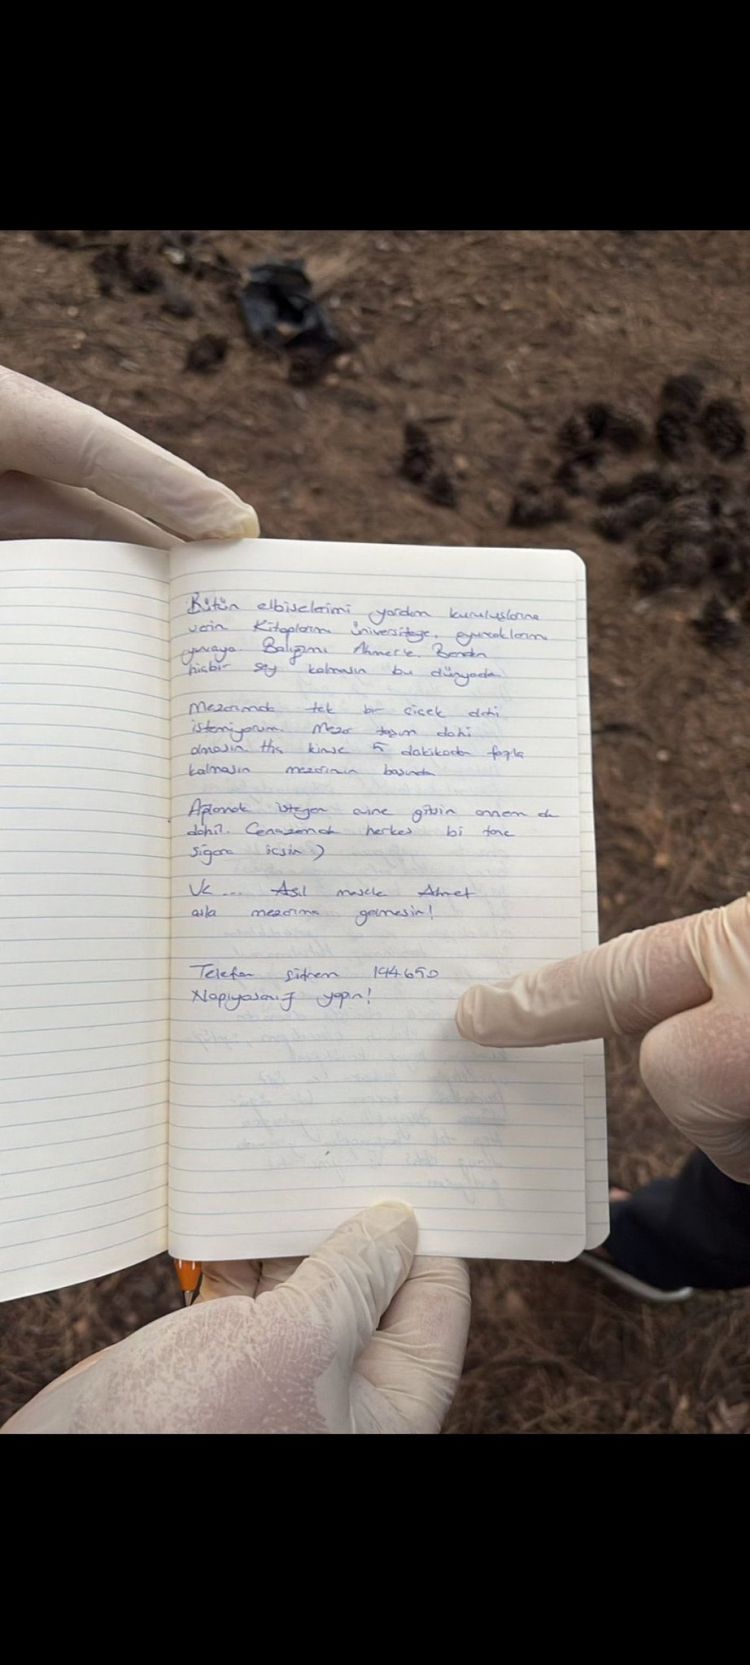 Bütün elbiselerimi yardım kuruluşlarına
verin Kitaplarımı üniversiteye, oyuncaklarımı
yuvaya Balığımı Ahmet'e. Benden
hiçbir şey kalmasın bu dünyada
Mezarımda tek bir çiçek dahi
istemiyorum. Mezar taşım dahi
olmasın Hiç kimse 5 dakikadan fazla
kalmasın mezarımın başında
Ağlamak isteyen evine gitsin annem de
dahil. Cenazemde herkes bi tane
sigara içsin )
Ve... Asıl mesele Ahmet
asla mezarıma gelmesin!
Telefon şifrem 194650
Napıyosanız yapın!